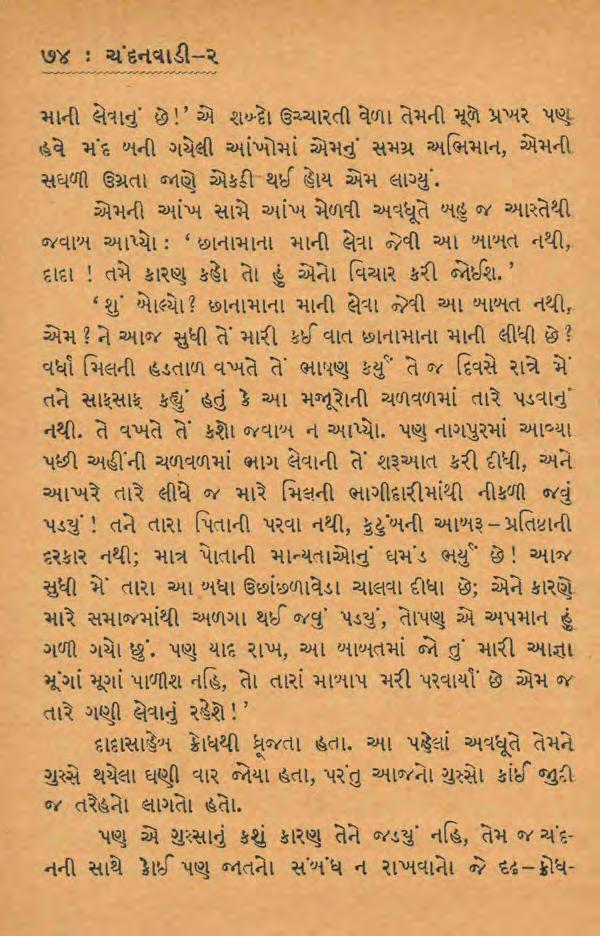 ૭૪ : ચંદનવાડી–૨
માની લેવાનું છે!’ એ શબ્દો ઉચ્ચારતી વેળા તેમની મૂળે પ્રખર પણ
હવે મંદ બની ગયેલી આંખોમાં એમનું સમગ્ર અભિમાન, એમની
સઘળી ઉગ્રતા જાણે એકઠી થઈ હોય એમ લાગ્યું.
એમની આંખ સામે આંખ મેળવી અવધૂતે બહુ જ આસ્તેથી
જવાબ આપ્યો : ‘છાનામાના માની લેવા જેવી આ બાબત નથી,
દાદા ! તમે કારણ કહો તો હું એનો વિચાર કરી જોઈશ.’
‘શું બોલ્યો? છાનામાના માની લેવા જેવી આ બાબત નથી,
એમ? ને આજ સુધી તેં મારી કઈ વાત છાનામાના માની લીધી છે?
વર્ધા મિલની હડતાળ વખતે તેં ભાષણ કર્યું તે જ દિવસે રાત્રે મેં
તને સાફસાફ કહ્યું હતું કે આ મજૂરોની ચળવળમાં તારે પડવાનું
નથી. તે વખતે તેં કશો જવાબ ન આપ્યો. પણ નાગપુરમાં આવ્યા
પછી અહીંની ચળવળમાં ભાગ લેવાની તેં શરૂઆત કરી દીધી, અને
આખરે તારે લીધે જ મારે મિલની ભાગીદારીમાંથી નીકળી જવું
પડયું! તને તારા પિતાની પરવા નથી, કુટુંબની આબરૂ–પ્રતિષ્ઠાની
દરકાર નથી; માત્ર પોતાની માન્યતાઓનું ઘમંડ ભર્યું છે! આજ
સુધી મેં તારા આ બધા ઉછાંછળાવેડા ચાલવા દીધા છે; એને કારણે
મારે સમાજમાંથી અળગા થઈ જવું પડયું, તોપણ એ અપમાન હું
ગળી ગયો છું. પણ યાદ રાખ, આ બાબતમાં જો તું મારી આજ્ઞા
મૂંગાં મૂગાં પાળીશ નહિ, તો તારાં માબાપ મરી પરવાર્યાં છે એમ જ
તારે ગણી લેવાનું રહેશે!’
દાદાસાહેબ ક્રોધથી ધ્રૂજતા હતા. આ પહેલાં અવધૂતે તેમને
ગુસ્સે થયેલા ઘણી વાર જોયા હતા, પરંતુ આજનો ગુસ્સો કાંઈ જુદી
જ તરેહનો લાગતો હતો.
પણ એ ગુસ્સાનું કશું કારણ તેને જડયું નહિ, તેમ જ ચંદ-
નની સાથે કોઈ પણ જાતનો સંબંધ ન રાખવાનો જે દૃઢ–ક્રોધ-